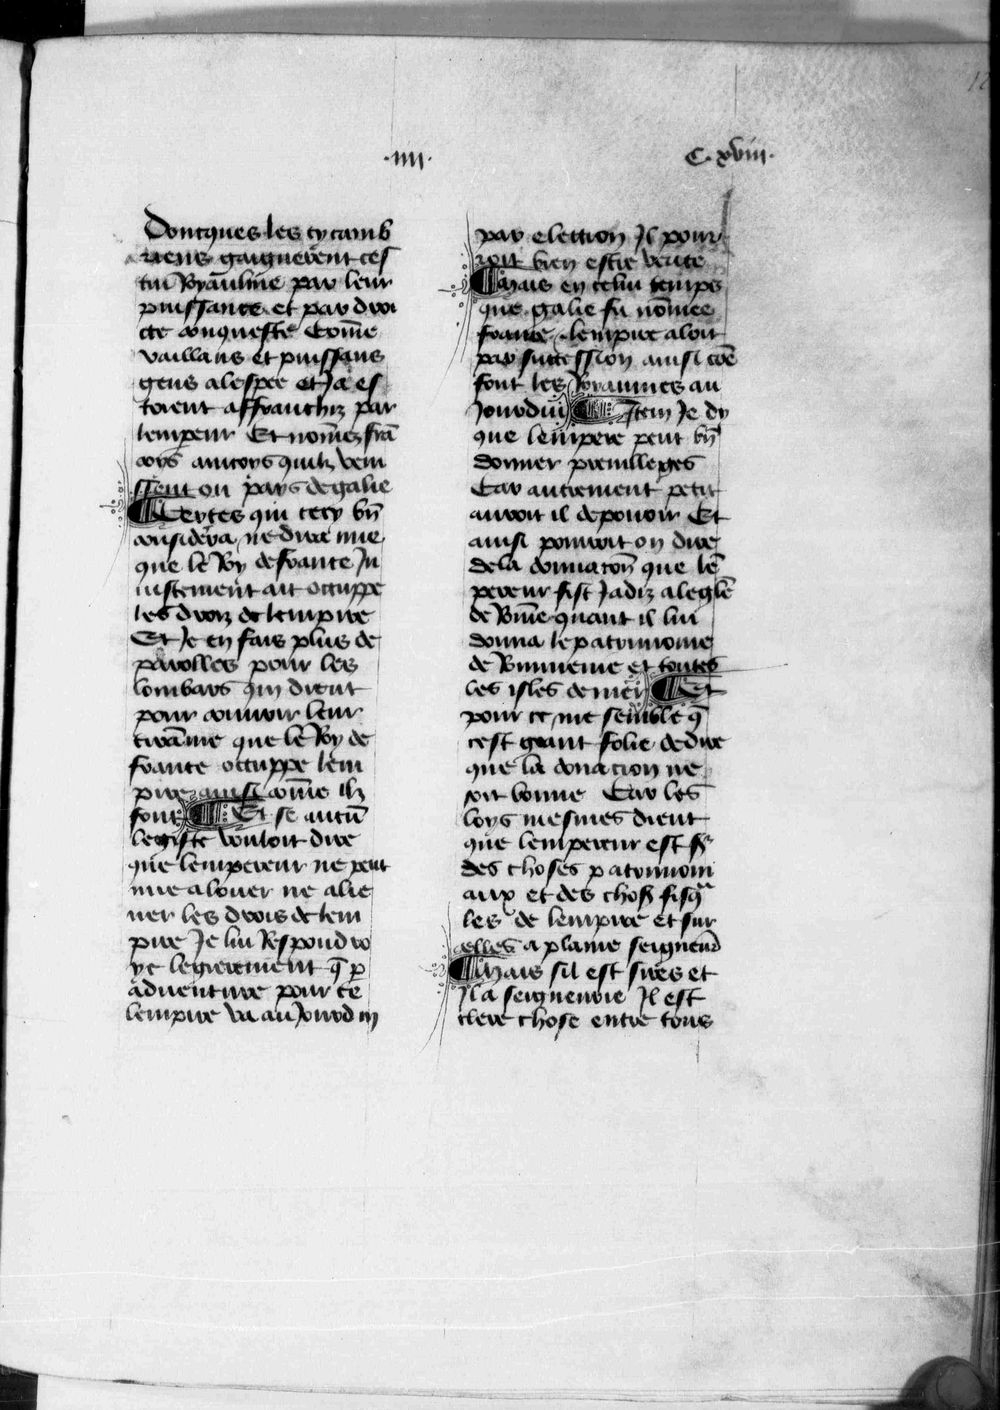 ·IIII·
C·xviii·
Doncques les cycamb
riens gaignerent ces
tui Royaulme par leur
puissance et par droi
cte conqueste Come
vaillans et puissans
gens a lespee et Ja es
toient affranchiz par
lempeur Et nomez fra
cois aincoys quilz veni
ssent ou pays de galie
Certes qui cecy bn
considera ne dira mie
que le Roy de france In
iustement ait occuppe
les droiz de lempire
Et Je en fais plus de
parolles pour les
lombars qui dient
pour couvrir leur
tirannie que le Roy de
france occuppe lem
pire ainsi come ilz
font Et se aucun
legiste vouloit dire
que lempereur ne peut
mie alouer ne alie
ner les drois de lem
pire Je lui Respondro
ye legierement q p
adventure pour ce
lempire va au Jourdui
par election Il pour
roit bien estre verite
Mais en celui temps
que galie fu nomee
france lempire aloit
par succession ainsi coe
font les Royaumes au
Jourdui Item Je dy
que lempere peut bn
donner previlleges
Car autrement petit
auroit il de povoir Et
ainsi pourroit on dire
de la donnacon que le
pereur fist Jadiz a legle
de Rome quant il lui
donna le patrimoine
de Rommenie et toutes
les isles de mer Et
pour ce me semble q
cest grant folie de dire
que la donacion ne
soit bonne Car les
loys mesmes dient
que lempereur est sr
des choses patrimoni
aux et des chos fisq
les de lempire et sur
celles a plaine seigneurie
Mais sil est sires et
Il a seigneurie Il est
clere chose entre tous